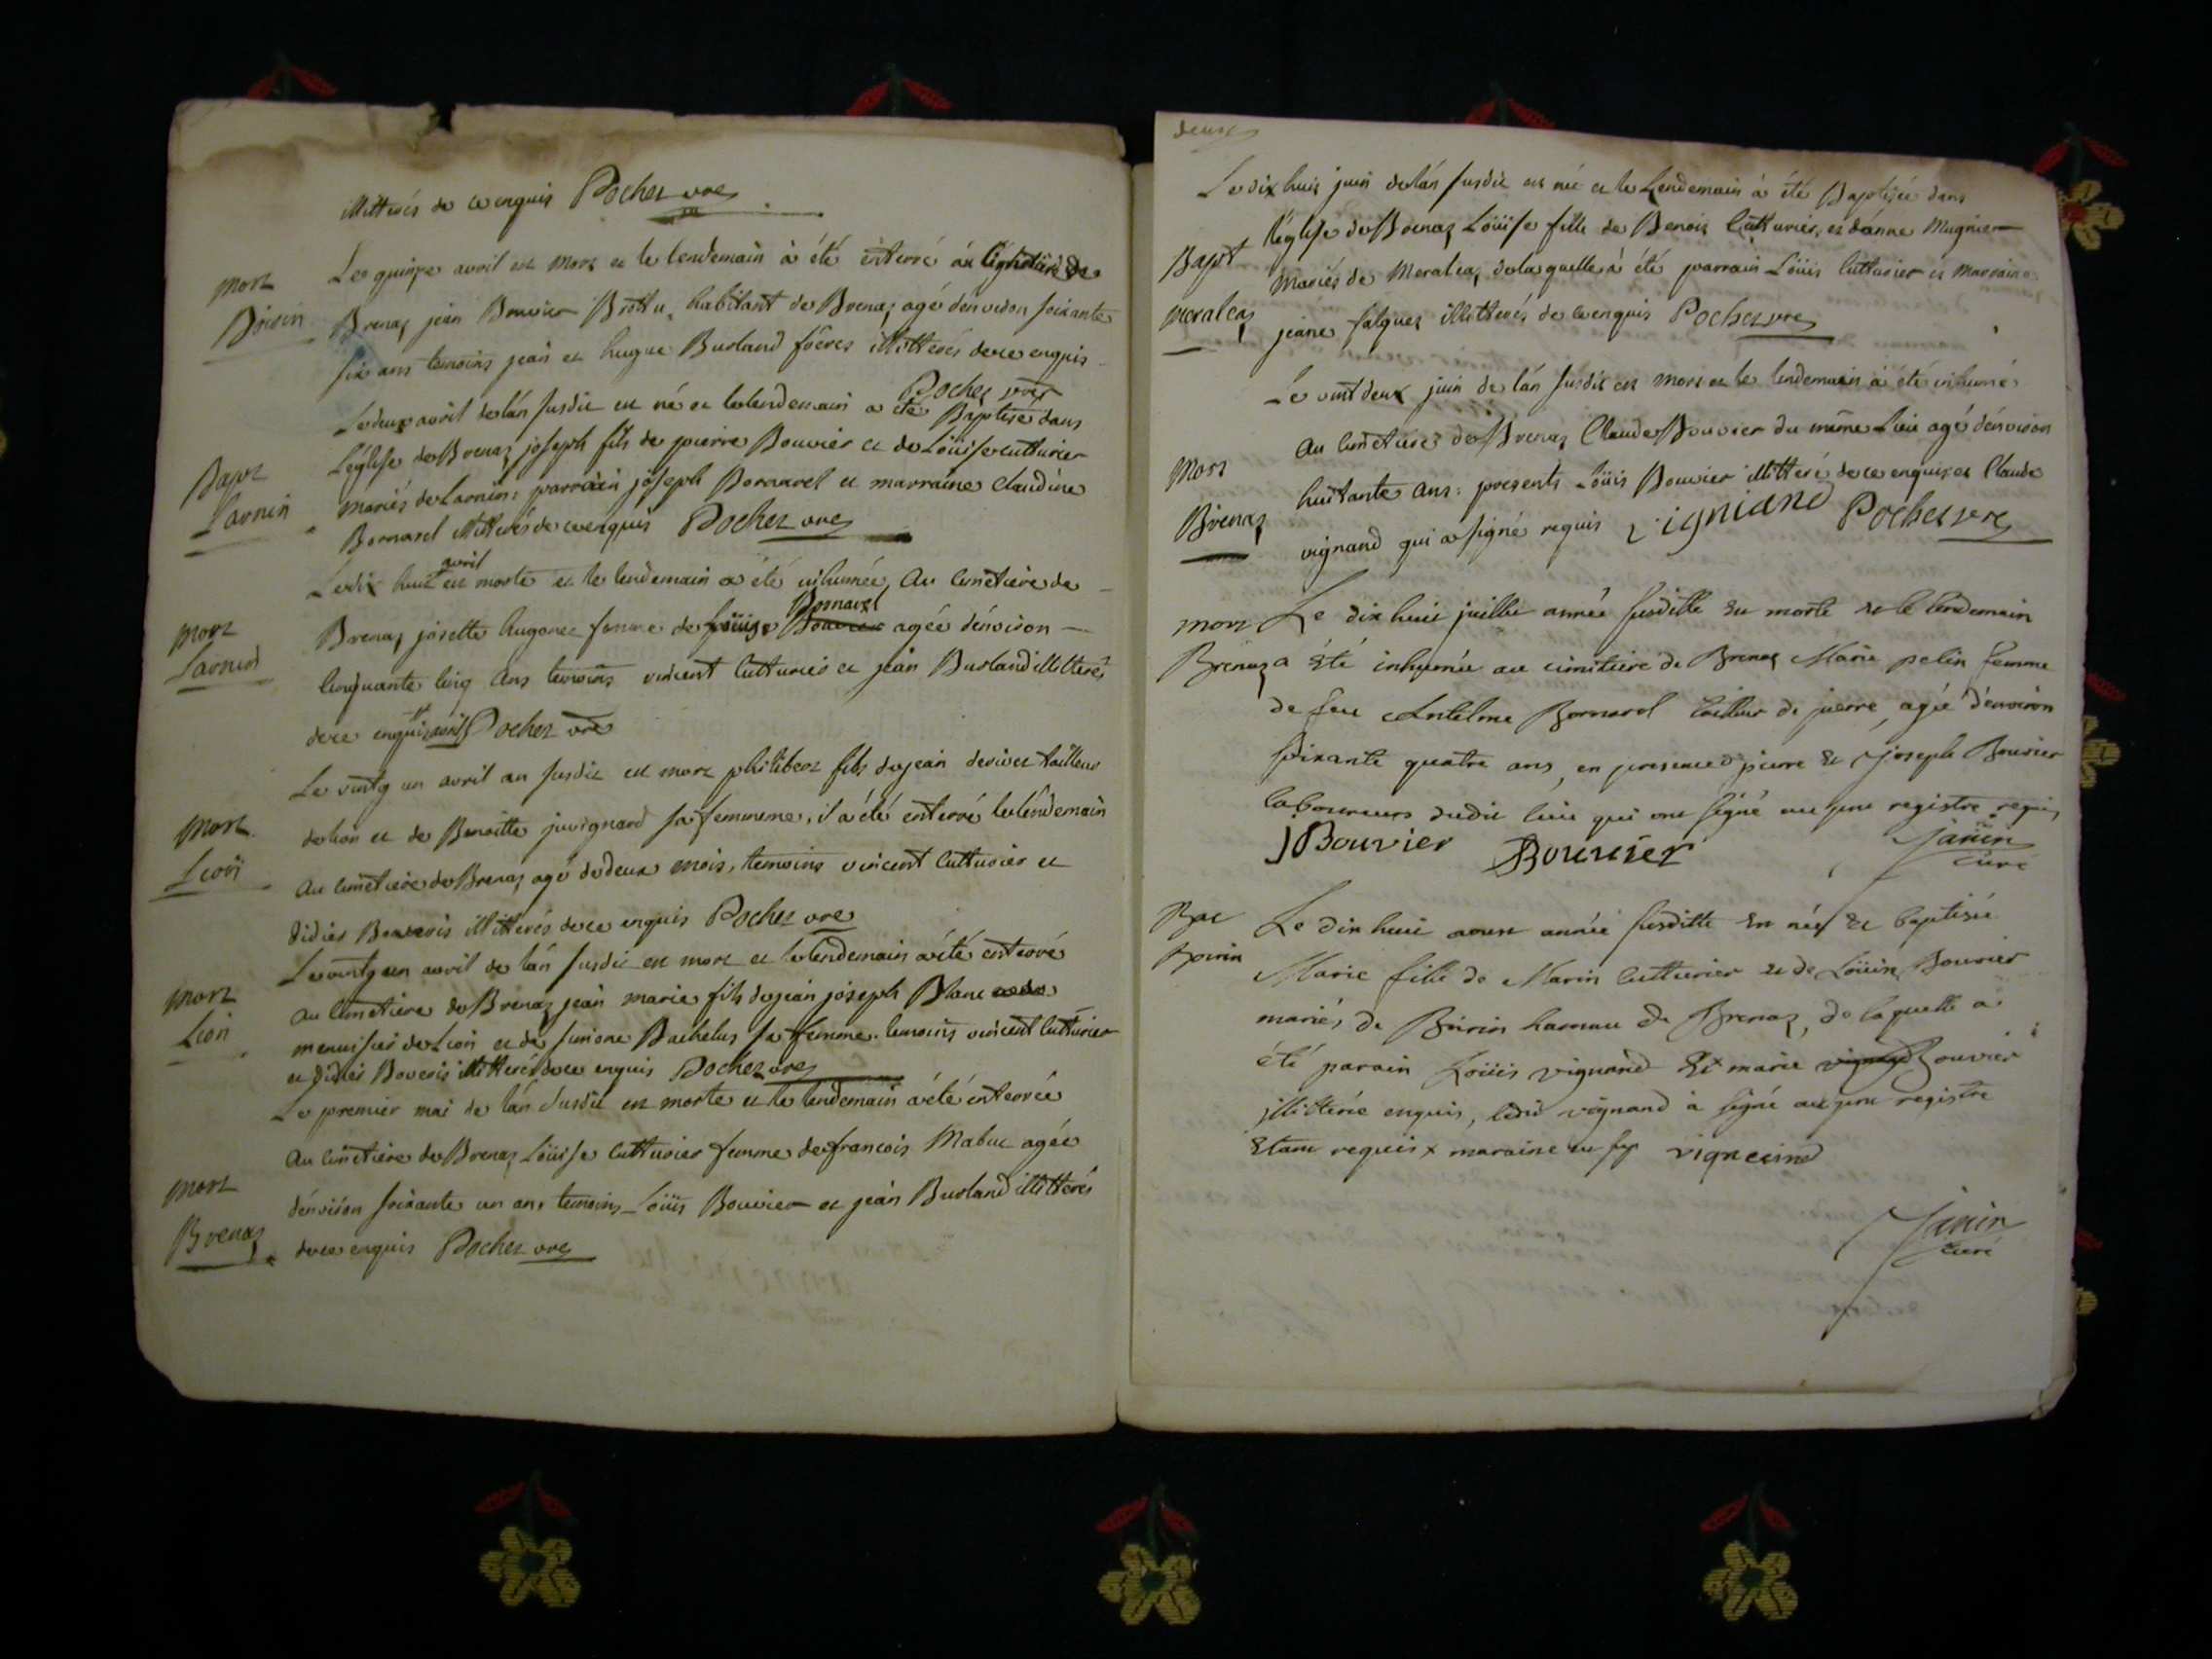 illitterés de ce enquis Pochez vre
mort
Boirin
Le quinze avril est mort et le lendemain à été enterré au cimetiere de
Brenaz jean Bouvier Brottu, habitant de Brenaz agé denviron soixante
six ans temoins jean et hugue Burland fréres illitterés de ce enquis
Pochez vre
Bapt
Larnin
Le deux avril de lán susdit est né et le lendemain a été Baptisé dans
Léglise de Brenaz joseph fils de pierre Bouvier et de Loüise cutturier
mariés de Larnin: parrain joseph Bornarel et marraine claudine
Bornarel illitterés de ce enquis Pochez vre
mort
Larnin
Le dix huit avril est morte et le lendemain a été inhumée, au cimetiere de
Brenaz josette hugonet femme de Bornarel agée dénviron
cinquante cinq ans temoins vincent cutturier et jean Burland illitterés
de ce enquis Pochez vre
mort
Lion
Le vintg un avril an susdit est mort philibert fils de jean tailleur
de lion et de Benoitte juvignard sa femmeme, il a été enterré le lendemain
au cimetiere de Brenaz agé de deux mois, temoins vincent cutturier et
didier illitterés de ce enquis Pochez vre
mort
Lion
Le vintg un avril de lán susdit est mort et le lendemain a été enterré
au cimetiere de Brenaz jean marie fils de jean joseph Blanc
menuisier de Lion et de simone Bachelus sa femme. temoins vincent cutturier
et didier illitterés de ce enquis Pochez vre
mort
Brenaz
Le premier mai de lán susdit est morte et le lendemain a été enterrée
au cimetiere de Brenaz Loüise cutturier femme de francois Mabuc agée
dénviron soixante un ans temoins Loüis Bouvier et jean Burland illitterés
de ce enquis Pochez vre
deux
Bapt
meraleaz
Le dix huit juin de lán susdit est née et le Lendemain à été Baptisée dans
léglise de Brenaz Loüise fille de Benoit Cutturier, et dánne Mugnier
mariés de Meraleaz, de la quelle à été parrain Loüis Cutturier et marraine
jeane falquez illitterés de ce enquis Pochez vre
Mort
Brenaz
Le vint deux juin de lán susdit est mort et le lendemain à été inhumé
au cimetiere de Brenaz Claude Bouvier du même Lieu agé dénviron
huitante ans: presents Loüis Bouvier illitteré de ce enquis et Claude
vignand qui a signé requis vigniand Pochez vre
mort
Brenaz
Le dix huit juillet année susditte est morte et le lendemain
a été inhumée au cimitiere de Brenaz Marie pelin femme
de feu Antelme Bornarel tailleur de pierre, agée d'environ
soixante quatre ans, en presence de pierre et joseph Bouvier
laboureurs dudit lieu qui ont signé au pnt registre requis
JBouvier Bouvier Janin
curé
Bat
Boirin
Le dix huit aoust année susditte est née et baptisée
Marie fille de Marin cutturier et de Loüise Bouvier
mariés de Boirin hameau de Brenaz, de laquelle a
été parain Loüis vignand Et marie Bouvier
illittérée enquis, ledit vignand à signé au pnt registre
Etant requis x maraine vigneand
Janin
curé